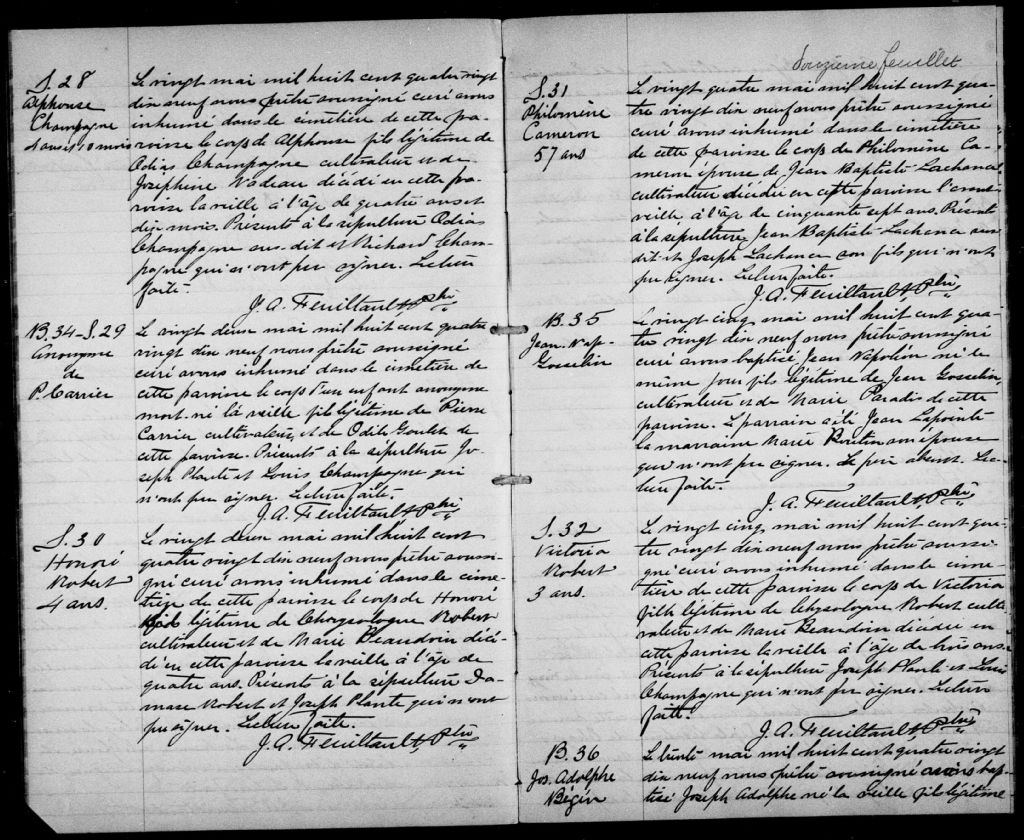 S. 28
Alphonse
Champagne
4 ans et 10 mois
Le vingt mai mil huit cent quatre vingt
dix neuf nous prêtre soussigné curé avons
inhumé dans le cimetière de cette pa-
roisse le corps de Alphonse fils légitime de
Odias Champagne cultivateur et de
Josephine Nadeau décédé en cette pa-
roisse la veille à l'âge de quatre ans et
dix mois. Présents à la sépulture Odias
Champagne sus. dit et Richard Cham-
pagne qui n'ont pu signer. Lecture
faite.
J. A. Feuiltault Ptre
B. 34 - S. 29
Anonyme
de
P. Carrier
Le vingt deux mai mil huit cent quatre
vingt dix neuf nous prêtre soussigné
curé avons inhumé dans le cimetière de
cette paroisse le corps d'un enfant anonyme
mort. né la veille fils légitime de Pierre
Carrier cultivateur, et de Odile Goulet de
cette paroisse. Présents à la sépulture Jo-
seph Plante et Louis Champagne qui
n'ont pu signer. Lecture faite.
J. A. Feuiltault Ptre
S. 30
Honoré
Robert
4 ans.
Le vingt deux mai mil huit cent
quatre vingt dix neuf nous prêtre soussi-
gné curé avons inhumé dans le cime-
tière de cette paroisse le corps de Honoré
fils légitime de Chrysologue Robert
cultivateur et de Marie Beaudoin décé-
dé en cette paroisse la veille à l'âge de
quatre ans. Présents à la sépulture Da-
mase Robert et Joseph Plante qui n'ont
pu signer. Lecture faite.
J. A. Feuiltault Ptre
douzième feuillet
S. 31
Philomène
Cameron
57 ans
Le vingt quatre mai mil huit cent qua-
tre vingt dix neuf nous prêtre soussigné
curé avons inhumé dans le cimetière
de cette paroisse le corps de Philomène Ca-
meron épouse de Jean Baptiste Lachance
cultivateur décédée en cette paroisse l'avant
veille à l'âge de cinquante sept ans. Présents
à la sépulture Jean Baptiste Lachance sus
dit et Joseph Lachance son fils qui n'ont
pu signer. Lecture faite.
J. A. Feuiltault Ptre
B. 35
Jean. Nap-
Gosselin
Le vingt cinq mai mil huit cent qua-
tre vingt dix neuf nous prêtre soussigné
curé avons baptisé Jean Napoléon né le
même jour fils légitime de Jean Gosselin,
cultivateur et de Marie Paradis de cette
paroisse. Le parrain a été Jean Lapointe
la marraine Marie Boutin son épouse
qui n'ont pu signer. Le père absent. Lec-
ture faite.
J. A. Feuiltault Ptre
S. 32
Victoria
Robert
3 ans.
Le vingt cinq mai mil huit cent qua-
tre vingt dix neuf nous prêtre soussi-
gné curé avons inhumé dans le cime-
tière de cette paroisse le corps de Victoria
fille légitime de Chrysologue Robert culti-
vateur et de Marie Beaudoin décédée en
cette paroisse la veille à l'âge de trois ans.
Présents à la sépulture Joseph Plante et Louis
Champagne qui n'ont pu signer. Lecture
faite.
J. A. Feuiltault Ptre
B. 36
Jos. Adolphe
Bégin
Le trente mai mil huit cent quatre vingt
dix neuf nous prêtre soussigné avons bap-
tisé Joseph Adolphe né la veille fils légitime